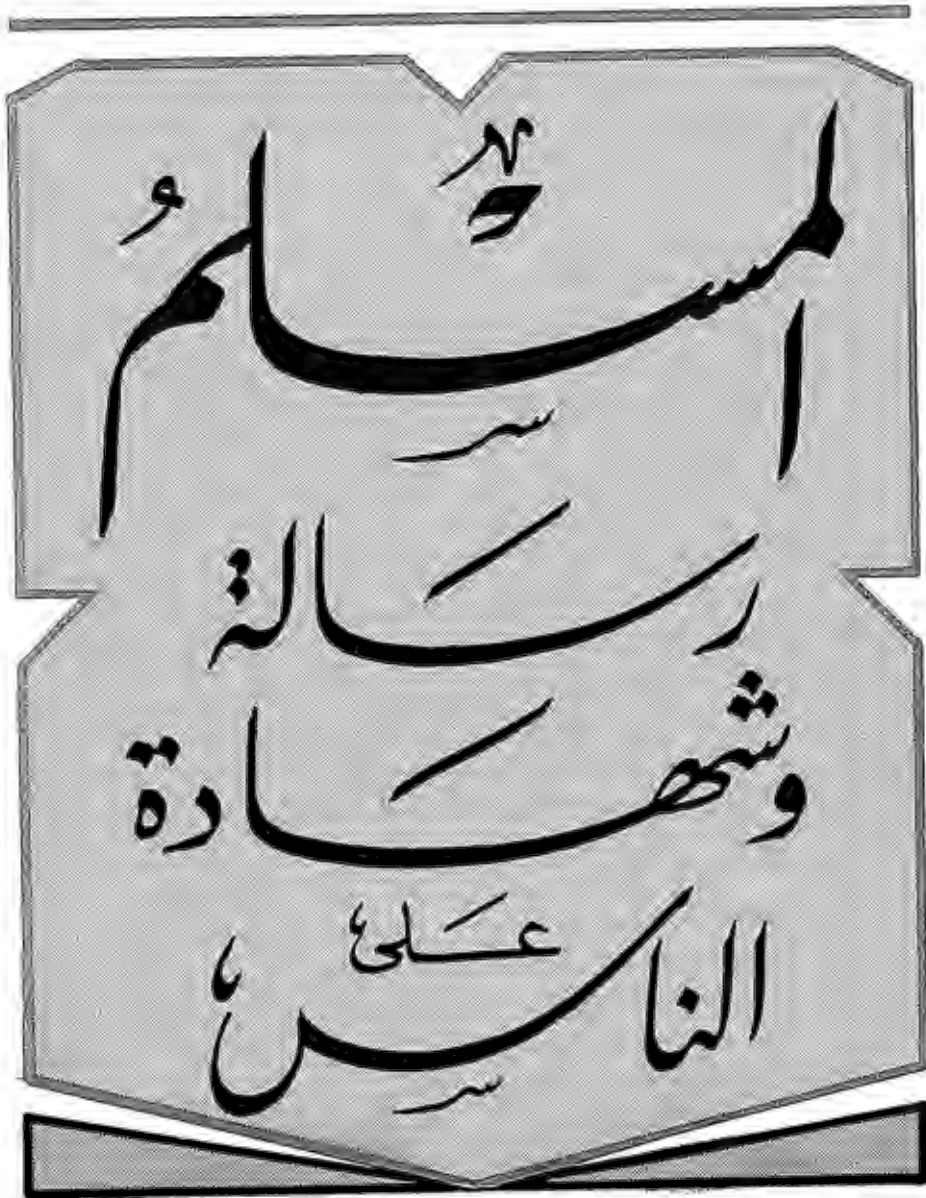 المسلمُ
رسَالة
وشهَادة
عَلى
الناس